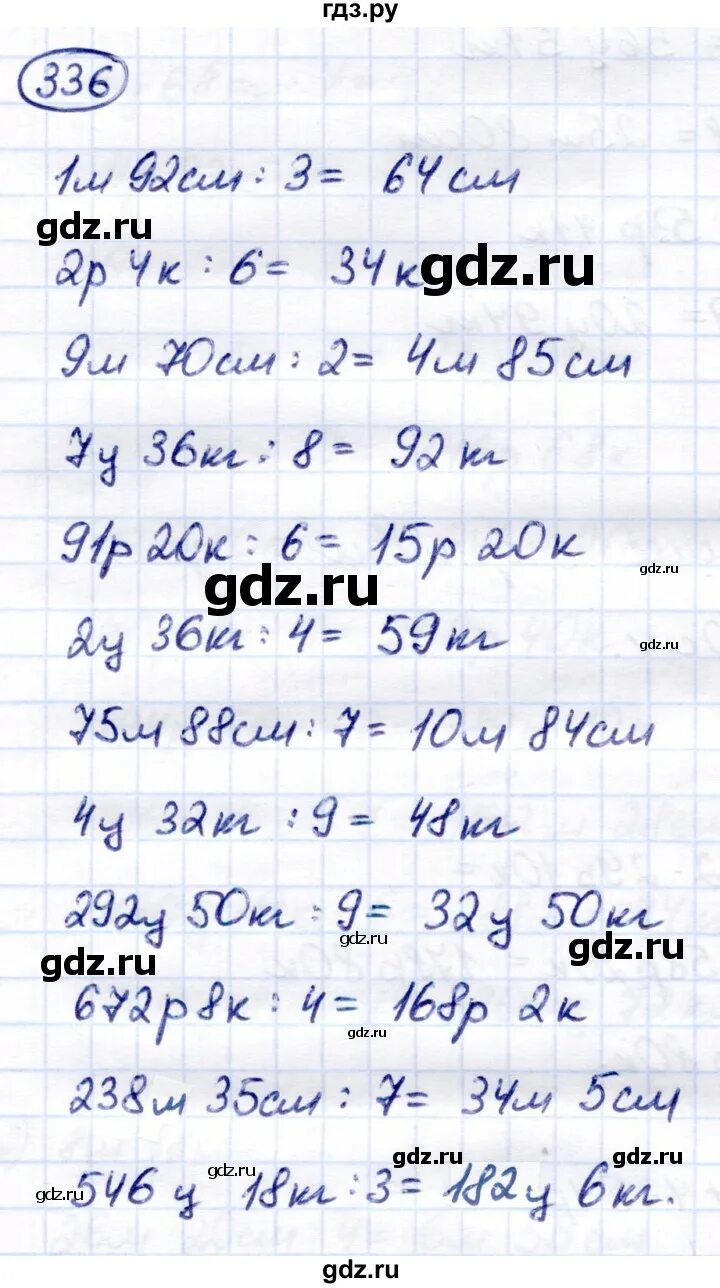 гдз.ру
336
1м 92см : 3 = 64см
gdz.ru
2р 4к : 6 = 34к
gdz.ru
9м 70см : 2 = 4м 85см
7ц 36кг : 8 = 92кг
91р 20к : 6 = 15р 20к
gdz.ru
gdz.ru
2ц 36кг : 4 = 59кг
gdz.ru
75м 88см : 7 = 10м 84см
4ц 32кг : 9 = 48кг
292ц 50кг : 9 = 32ц 50кг
gdz.ru
gdz.ru
gdz.ru
672р 8к : 4 = 168р 2к
gdz.ru
238м 35см : 7 = 34м 5см
gdz.ru
gdz.ru
gdz.ru
546ц 18кг : 3 = 182ц 6кг.
gdz.ru
gdz.ru
gdz.ru